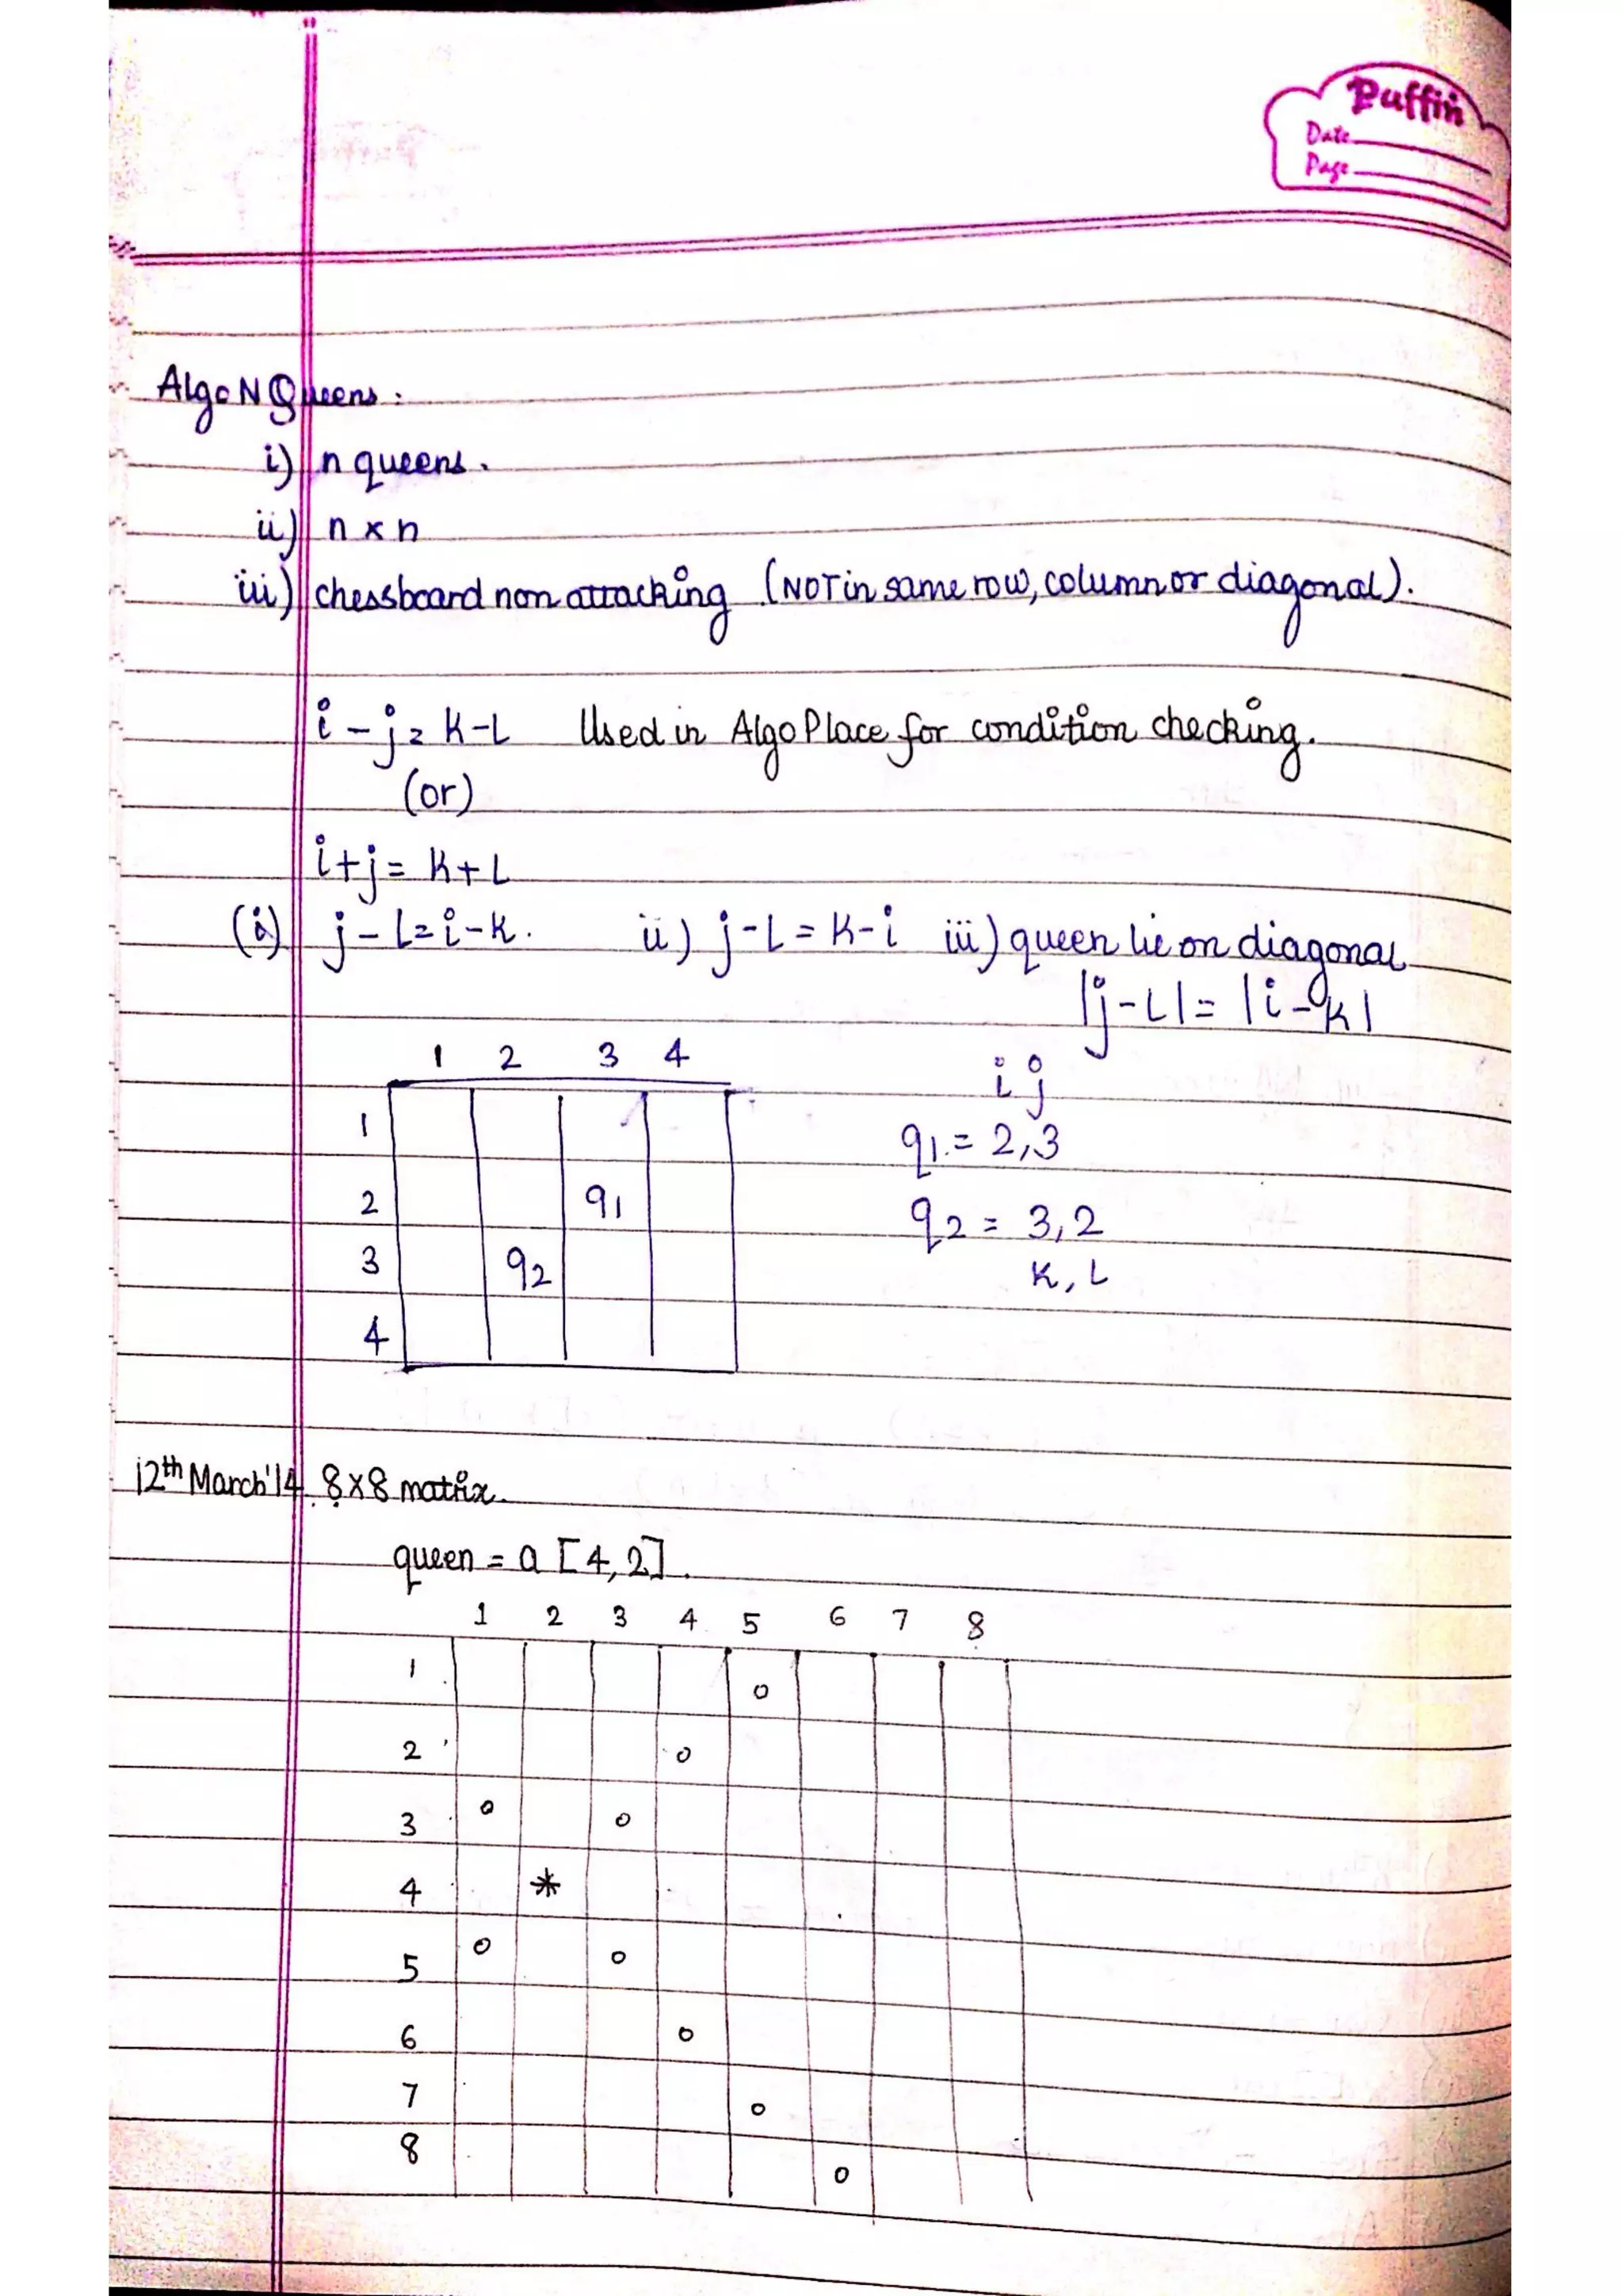 Puffin
Date
Page
Algo N Queens :
i) n queens.
ii) n x n
iii) chessboard non attacking (NOT in same row, column or diagonal).
i - j = k - L Used in Algo Place for condition checking.
(or)
i + j = k + L
(i) j - L = i - k. ii) j - L = k - i iii) queen lie on diagonal
|j - L| = |i - k|
1 2 3 4
i j
1
q1 = 2,3
2 q1
q2 = 3,2
3 q2
k, L
4
12th March'14. 8x8 matrix.
queen = a [4,2].
1 2 3 4 5 6 7 8
1 o
2 o
3 o o
4 *
5 o o
6 o
7 o
8 o